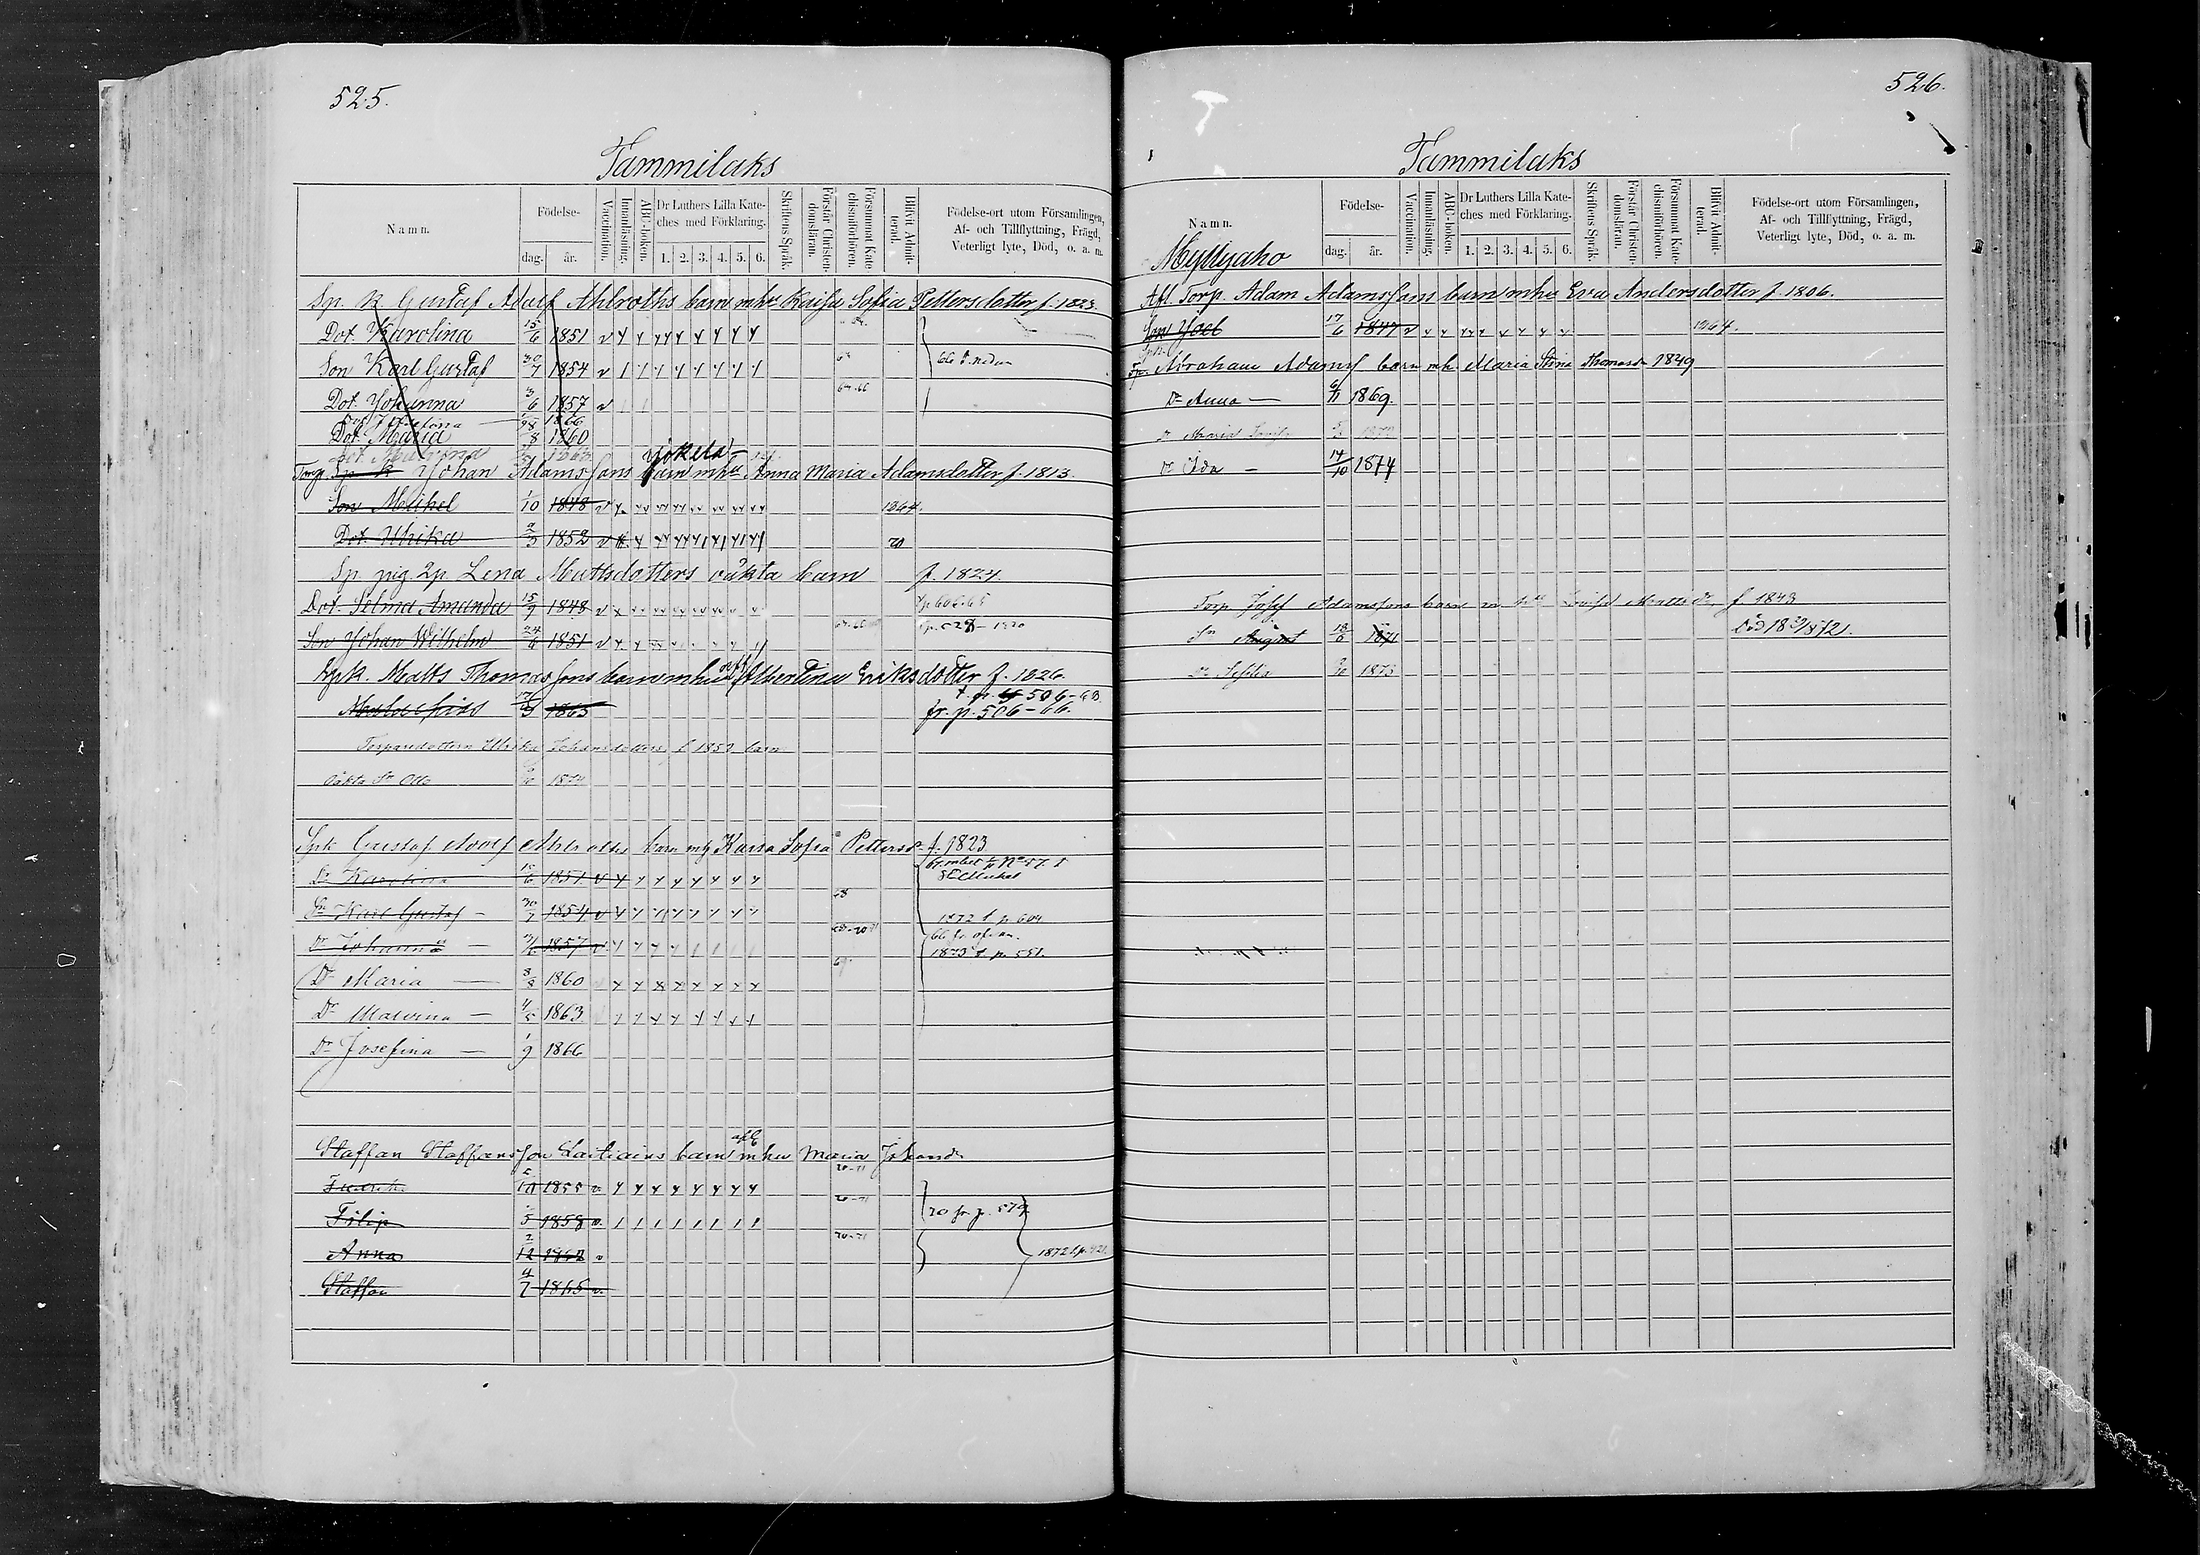 525.
Tammilaks
Namn.
Födelse-
dag. år.
Vaccination.
Innanläsning.
ABC-boken.
Dr Luthers Lilla Kate-
ches med Förklaring.
1. 2. 3. 4. 5. 6.
Skriftens Språk.
Förstår Christen-
domsläran.
Försummat Kate-
chismiförhören.
Blifvit Admit-
terad.
Födelse-ort utom Församlingen,
Af- och Tillflyttning, Frägd,
Veterligt lyte, Död, o. a. m.
Sp. k Gustaf Adolf Ahlroths barn mhu Kaisa Sofia Pettersdotter f. 1823.
Dot. Karolina 15/6 1851
Son Karl Gustaf 30/7 1854 66 t. nedan
Dot. Johanna 3/6 1857 v 64-66
Dot. Josefina 1866
Dot. Maria 28/8 1860
Dot. Malvina 1863
Jokela
Torp. Sp k Johan Adamssons barn mhu Anna Maria Adamsdotter f. 1813.
Son Mikel 1/10 1848 1864.
Dot. Ulrika 2/3 1852 70
Sp. pig 2p Lena Mattsdotters oäkta barn f. 1824.
Dot. Selma Amanda 15/9 1848 p 606-65
Son Johan Wilhelm 24/6 1851 p. 528-1870
Spk. Matts Thomassons barn mhu Albertina Eriksdotter f. 1826.
1865 t. p. 506-63
fr. p. 506-66.
Torparedottern Ulrika Johansdotters f 1852 barn
oäkta Sn Otto 1874
Spk Gustaf Adolf Ahlroths barn mh Kaisa Sofia Pettersdr f. 1823
Dr Karolina 15/6 1851 v
St Mickel
Sn Karl Gustaf 30/7 1854 v 68 1872 t. p. 604
Dr Johanna 3/6 1857 68-70 66 fr. ofvan.
1873 t. p. 551.
Dr Maria 8/8 1860 69
Dr Malvina 4/5 1863
Dr Josefina 1/9 1866
Staffan Staffansson Laitiains barn mhu Maria Johansdr
Fredrik 5/10 1855 v. 70-71
Filip 5 1858 v. 70-71 70 fr. p. 579
Anna 2/12 1862 v 70-71 1872 t. p. 421
Staffan 4/7 1865 v.
526.
Tammilaks
Namn.
Födelse-
dag. år.
Vaccination.
Innanläsning.
ABC-boken.
Dr Luthers Lilla Kate-
ches med Förklaring.
1. 2. 3. 4. 5. 6.
Skriftens Språk.
Förstår Christen-
domsläran.
Försummat Kate-
chismiförhören.
Blifvit Admit-
terad.
Födelse-ort utom Församlingen,
Af- och Tillflyttning, Frägd,
Veterligt lyte, Död, o. a. m.
Myllyaho
Afl. Torp. Adam Adamssons barn mhu Eva Andersdotter f. 1806.
Son Joel 17/6 1847 v 1864.
Torp. Abraham Adamss barn mh. Maria Stina Thomasdr 1849
Dr Anna 6/11 1869.
Dr Maria Lovisa 1872
Dr Ida 14/10 1874
Torp Josef Adamssons barn m hu Lovisa Matts dr f. 1843
Sn August 18/6 1871 Död 18 30/1 72.
Dr Sofia 1873